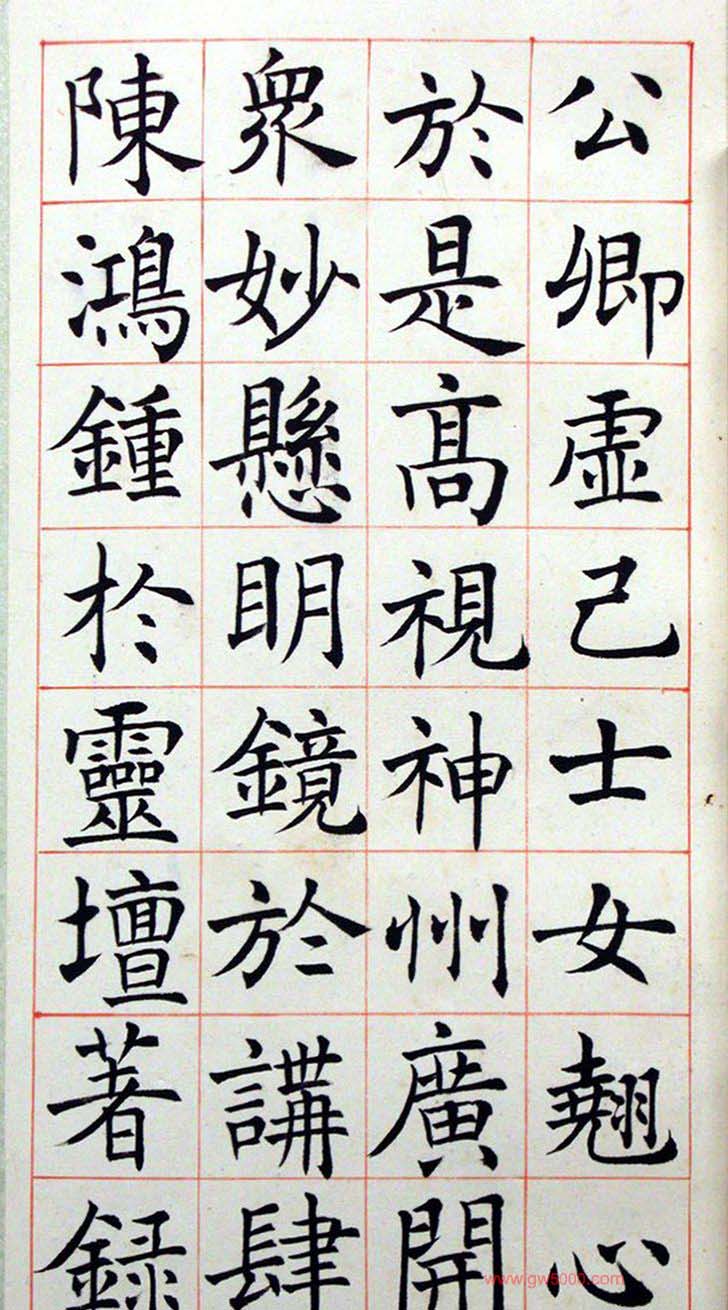 公卿虚己士女翹心
於是髙視神州廣開
衆妙懸明鏡於講肆
陳鴻鍾於靈壇著録
www.gw5000.com